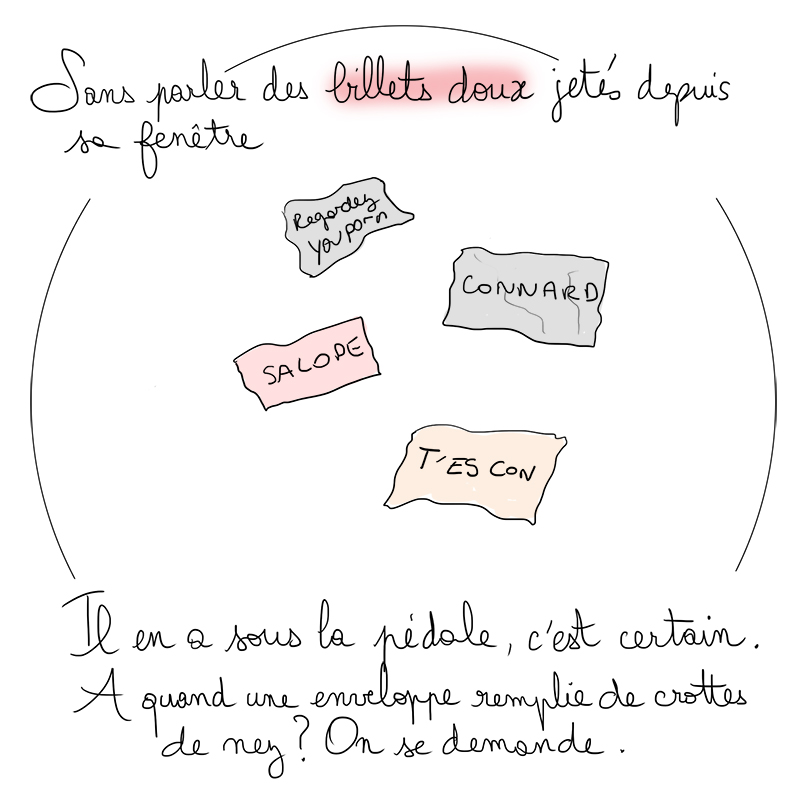 Sans parler des billets doux jetés depuis
sa fenêtre
Regardez
youporn
CONNARD
SALOPE
T'ES CON
Il en a sous la pédale, c'est certain.
A quand une enveloppe remplie de crottes
de nez? On se demande.